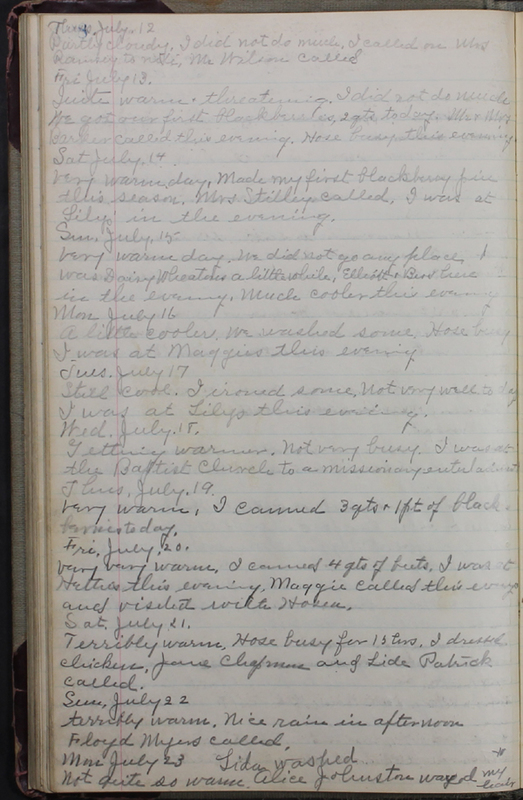 Thurs, July. 12
Partly cloudy, I did not do much, I called on Mrs
to nite, Mr Wilson called
Fri July 13.
Quite warm & threatening. I did not do much
We got our first blackberries, 2 qts today. Mr & Mrs
called this evening. Hose busy this evening
Sat July. 14
Very warm day, Made my first blackberry pie
this season. Mrs Stilley called, I was at
Lilys in the evening.
Sun, July. 15-
Very warm day, We did not go any place, I
was Dairy Wheatons a little while, & Bess here
in the evening. Much cooler this evening
Mon July 16
A little cooler, We washed some, Hose busy
I was at Maggies this evening
Tues. July 17
Still cool. I ironed some, Not very well to day
I was at Lilys this evening.
Wed. July. 18.
Getting warmer. Not very busy. I was at
the Baptist Church to a missionary
Thurs, July. 19.
Very warm, I canned 3 qts & 1 pt of black
berries today.
Fri, July. 20.
Very very warm, I canned 4 qts of beets, I was at
Hatties this evening, Maggie called this evening
and visited with Hosea.
Sat, July 21.
Terribly warm, Hose busy for 13 hrs. I dressed
chicken, Jane Chapman and Lida Patrick
called.
Sun, July 22
terribly warm, Nice rain in afternoon
Floyd Myers called,
Mon July 23 Lida washed
Not quite so warm, Alice Johnston waved my
hair